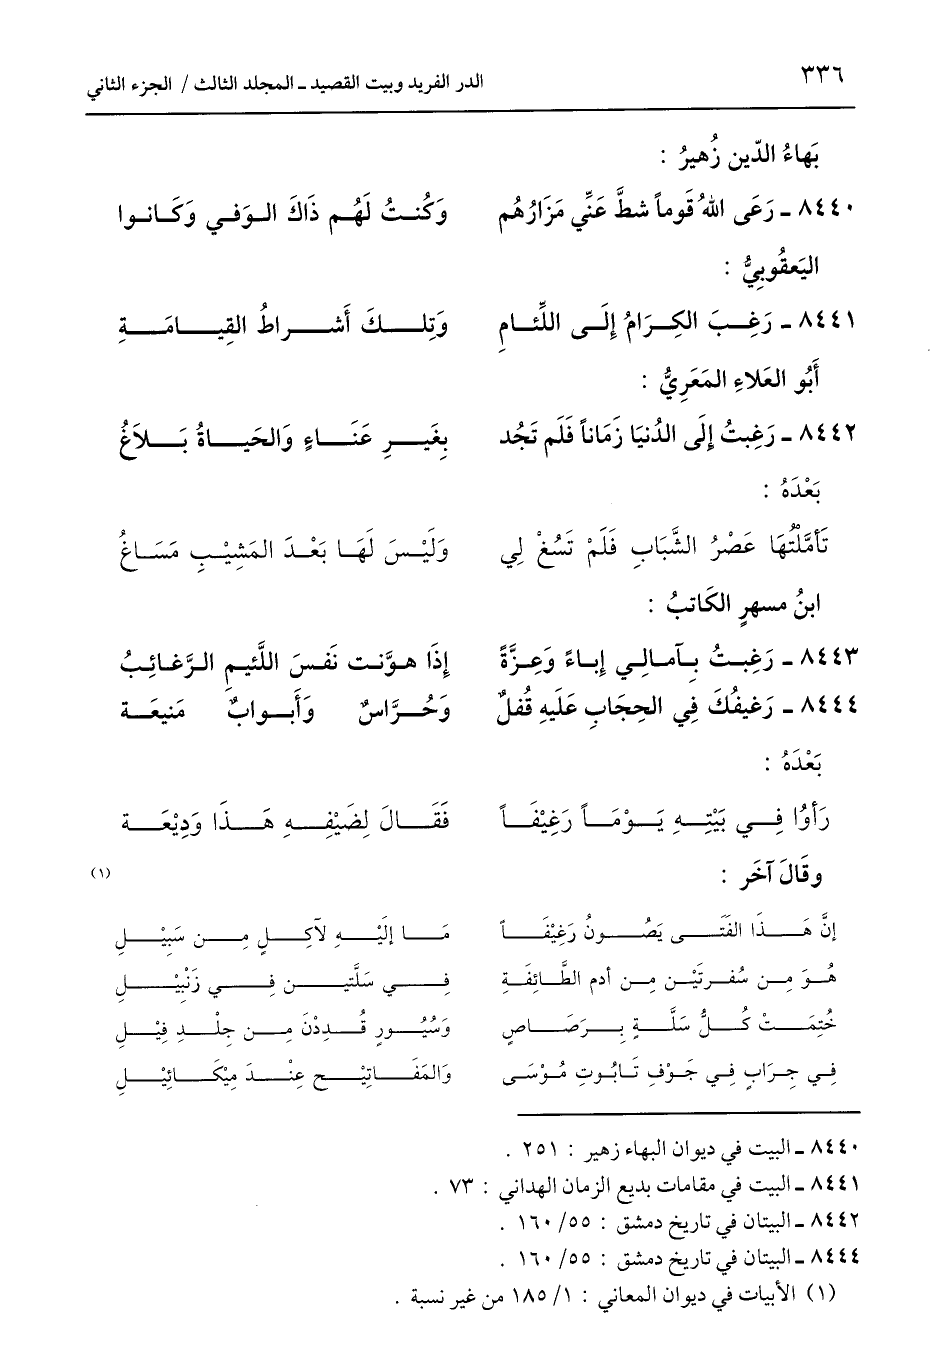 ٣٣٦ الدر الفريد وبيت القصيد ـ المجلد الثالث / الجزء الثاني
بَهاءُ الدّين زُهيرُ :
٨٤٤٠ ـ رَعَى اللهُ قَوماً شطَّ عَنِّي مَزَارُهُم وَكُنتُ لَهُم ذَاكَ الوَفي وَكَانوا
اليَعقُوبِيُّ :
٨٤٤١ ـ رَغِبَ الكِرَامُ إِلَى اللِّئامِ وَتِلكَ أَشراطُ القِيامَةِ
أَبُو العَلاءِ المَعَرِيُّ :
٨٤٤٢ ـ رَغِبتُ إِلَى الدُنيَا زَمَاناً فَلَم تَجُد بِغَيرِ عَنَاءٍ وَالحَياةُ بَلاَغُ
بَعْدَهُ :
تَأمَّلْتُهَا عَصْرُ الشَّبَابِ فَلَمْ تَسُغْ لِي وَلَيْسَ لَهَا بَعْدَ المَشِيْبِ مَسَاغُ
ابنُ مسهرٍ الكَاتبُ :
٨٤٤٣ ـ رَغِبتُ بِآمالِي إِباءً وَعِزَّةً إِذَا هوَّنت نَفسَ اللَّئيمِ الرَّغائِبُ
٨٤٤٤ ـ رَغيفُكَ فِي الحِجَابِ عَلَيهِ قُفلٌ وَحُرَّاسٌ وَأَبوابٌ مَنيعَة
بَعْدَهُ :
رَأَوُا فِي بَيْتِهِ يَوْمَاً رَغِيْفَاً فَقَالَ لِضَيْفِهِ هَذَا وَدِيْعَة
وقَالَ آخَر : (١)
إِنَّ هَذَا الفَتَى يَصُوْنُ رَغِيْفَاً مَا إِلَيْهِ لآكِلٍ مِن سَبِيْلِ
هُوَ مِن سُفرتَيْن مِن أدم الطَّائِفَةِ فِي سَلَّتَيِن فِي زَنْبِيْلِ
خُتِمَتْ كُلُّ سَلَّةٍ بِرَصَاصٍ وَسُيُورٍ قُدِدْنَ مِن جِلْدِ فِيْلِ
فِي جِرَابٍ فِي جَوْفِ تَابُوتِ مُوْسَى وَالمَفَاتِيْحِ عِنْدَ مِيْكَائِيْلِ
٨٤٤٠ ـ البيت في ديوان البهاء زهير : ٢٥١ .
٨٤٤١ ـ البيت في مقامات بديع الزمان الهداني : ٧٣ .
٨٤٤٢ ـ البيتان في تاريخ دمشق : ٥٥/ ١٦٠ .
٨٤٤٤ ـ البيتان في تاريخ دمشق : ٥٥/ ١٦٠ .
(١) الأبيات في ديوان المعاني : ١/ ١٨٥ من غير نسبة .